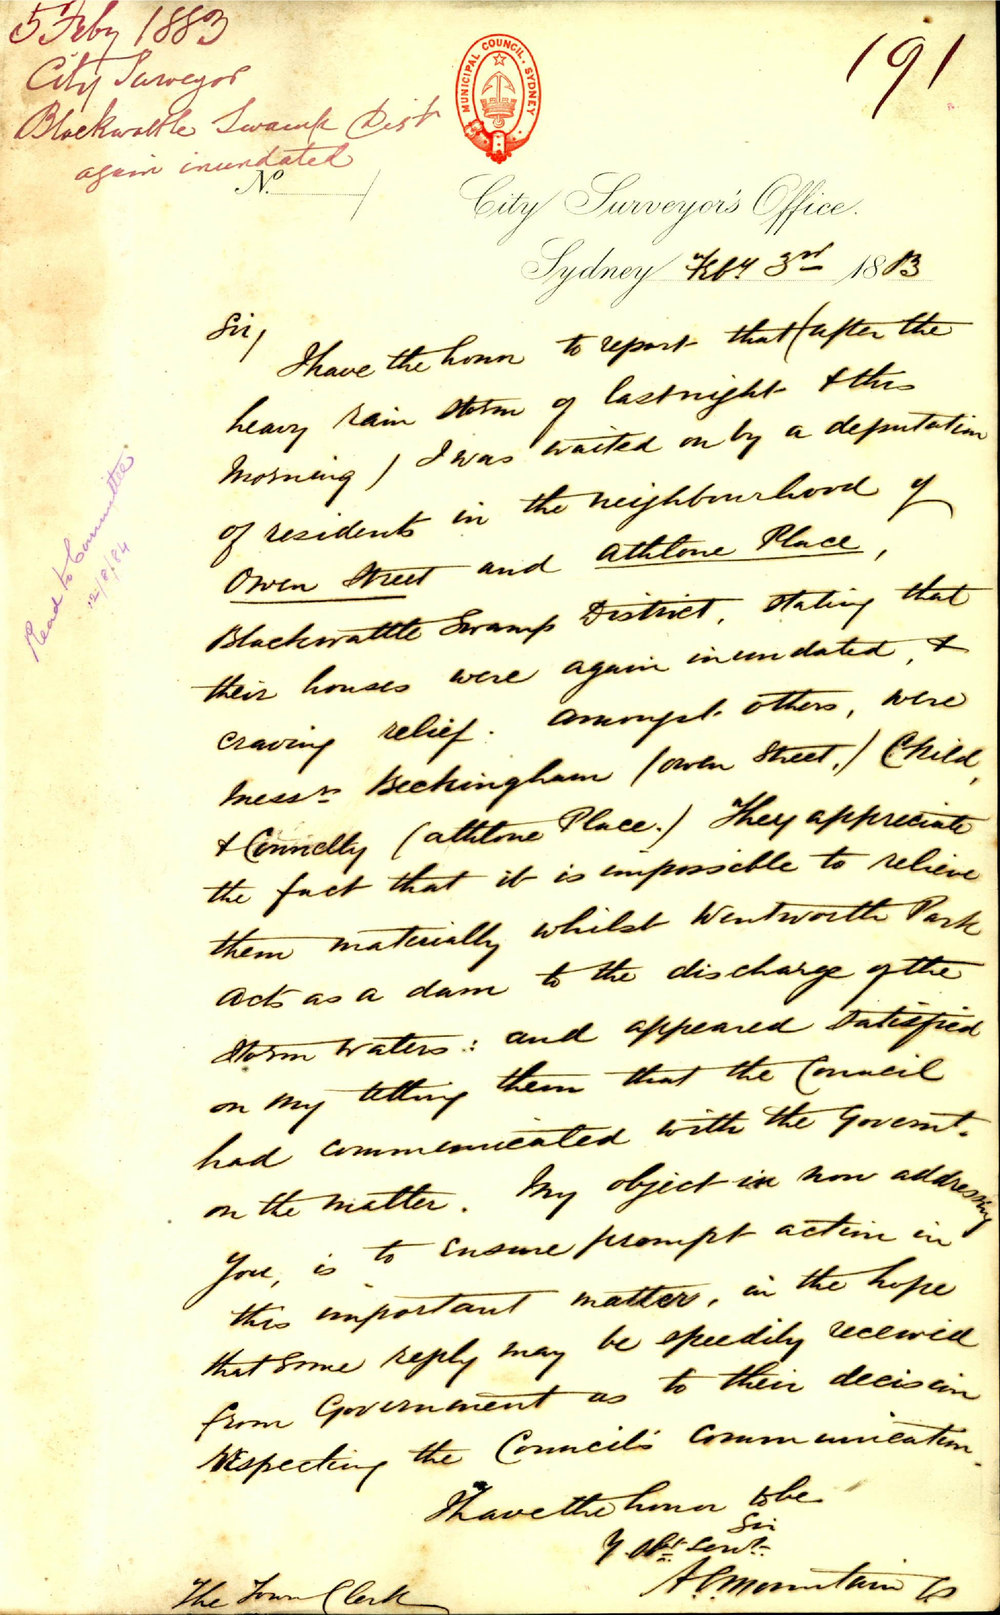 5 Feby 1883
City Surveyor
Blackwattle Swamp Dist
again inundated
191
MUNICIPAL COUNCIL. SYDNEY
No.
City Surveyor's Office.
Sydney Feby 3rd 1883
Sir,
I have the honor to report that (after the
heavy rain storm of last night & this
morning) I was waited on by a deputation
of residents in the neighbourhood of
Owen Street and Athlone Place,
Blackwattle Swamp District, stating that
their houses were again inundated, &
craving relief. Amongst others, were
Messrs Beckingham (Owen Street.) Child,
& Connelly (Athlone Place.) They appreciate
the fact that it is impossible to relieve
them materially whilst Wentworth Park
acts as a dam to the discharge of the
storm waters: and appeared satisfied
on my telling them that the Council
had communicated with the Governt.
on the matter. My object in now addressing
you, is to ensure prompt action in
this important matter, in the hope
that some reply may be speedily received
from Government as to their decision
respecting the Council's communication.
I have the honor to be
Sir
Y Obt Servt.
A C Mountain CS
The Town Clerk
Read to Committee
12/8/84